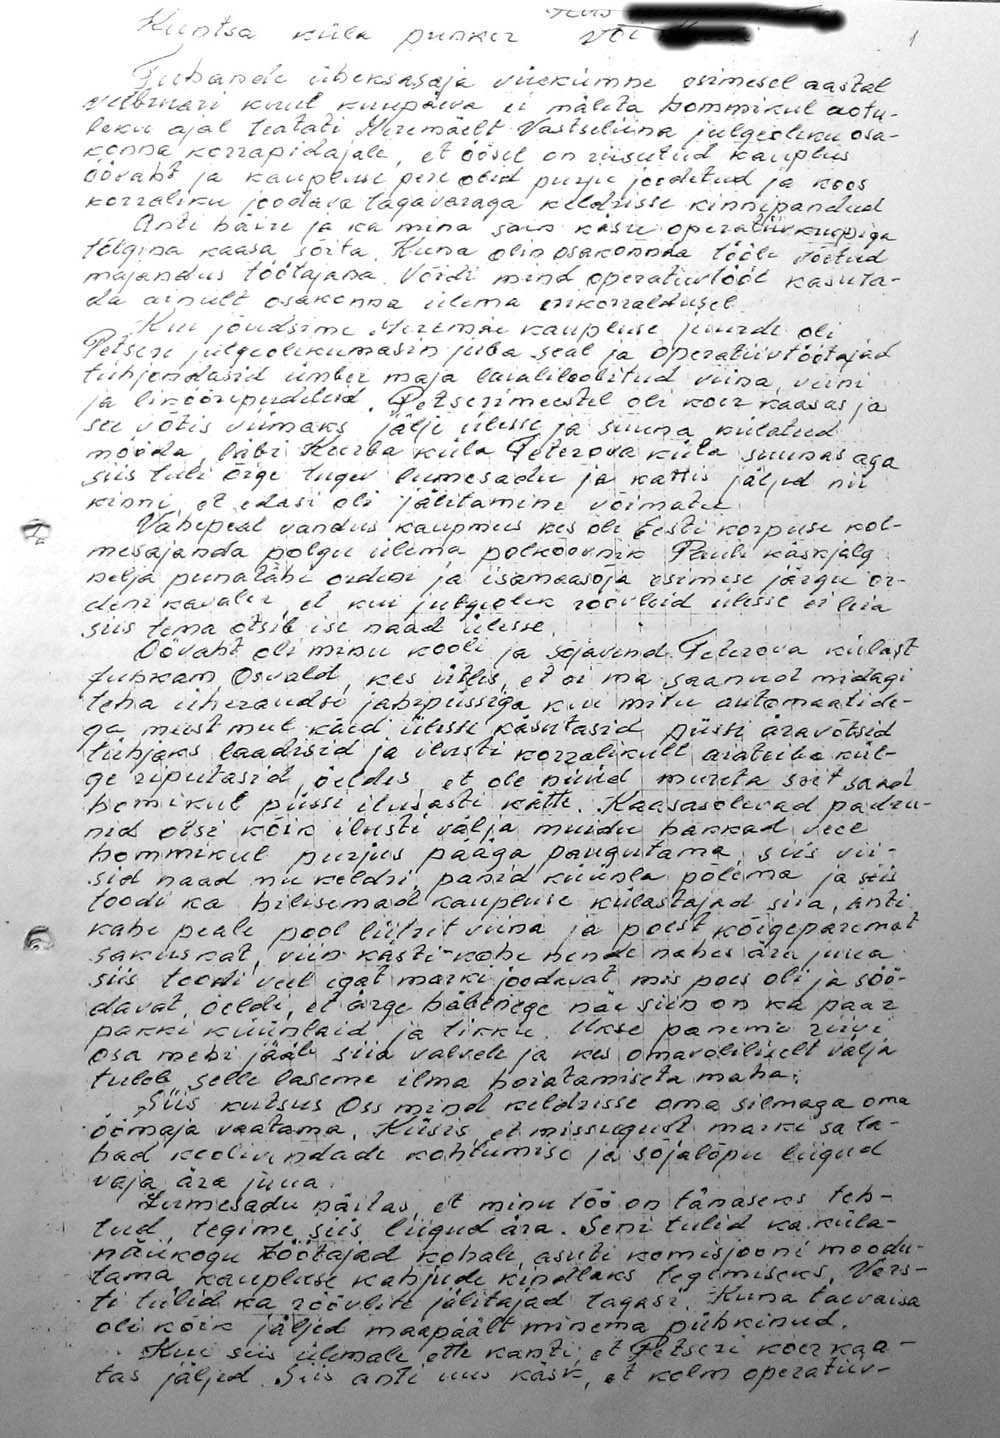 Kuntsa küla punker või
1
Tuhande üheksasaja viiekümne esimesel aastal
veebruari kuul kuupäeva ei mäleta hommikul
ajal teatati Meremäelt Vastseliina julgeoleku osa-
konna korrapidajale, et öösel on riisutud kauplus
öövaht ja kaupluse pere olid purju joodetud ja koos
korraliku joodava tagavaraga keldrisse kinnipandud
Anti häire ja ka mina sain käsu operatiivgrupiga
tõlgina kaasa sõita. Kuna olin osakonna tööle võetud
majandus töötajana. Võidi mind operatiivtööl kasuta-
da ainult osakonna ülema erikorraldusel.
Kui jõudsime Meremäe kaupluse juurde oli
Petseri julgeolekumasin juba seal ja operatiivtöötajad
tühjendasid ümber maja laialiloobitud viina, veini
ja likööripudeleid. Petserimeestel oli koer kaasas ja
see võtis viimaks jälje ülesse ja suuna külatud
mööda, läbi Kurba küla Teterova küla suunas aga
siis tuli õige tugev lumesadu ja kattis jäljed nii
kinni, et edasi oli jälitamine võimatu.
Vahepeal vandus kaupmees kes oli Eesti korpuse kol-
mesajanda polgu ülema polkovnik Pauli käskjalg
nelja punatähe ordeni ja isamaasõja esimese järgu or-
deni kavaler, et kui julgeolek röövleid ülesse ei leia
siis tema otsib ise naad ülesse.
Öövaht oli minu kooli ja sõjavend Teterova külast
Osvald, kes ütles, et ei ma saanud midagi
teha üheraudse jahipüssiga kui mitu automaatide-
ga meest mul käed ülesse käsutasid püssi äravõtsid
tühjaks laadisid ja ilusti korralikult aiateiba kül-
ge riputasid, öeldes, et ole nüüd mureta sort saad
homikul püssi ilusasti kätte. Kaasasolevad padru-
nid otsi kõik ilusti välja muidu hakkad veel
hommikul purjus pääga paugutama, siis vii-
sid naad mu keldri, panid küünla põlema ja siis
toodi ka hilisemad kaupluse külastajad siia, anti
kahe peale pool liitrit viina ja poest kõigeparemat
sakuskat, viin kästi kohe nende nähes ära juua
siis toodi veel igat marki joodavat mis poes oli ja söö-
davat, öeldi, et ärge häbenege näe siin on ka paar
pakki küünlaid ja tikke. Ukse paneme riivi
osa mehi jääb siia valvele ja kes omavoliliselt välja
tuleb selle laseme ilma hoiatamiseta maha.
Siis kutsus Oss mind keldrisse oma silmaga oma
öömaja vaatama. Küsis, et missugust marki sa ta-
had koolivendade kohtumise ja sõjalõpu liigud
vaja ära juua.
Lumesadu näitas, et minu töö on tänaseks teh-
tud, tegime siis liigud ära. Seni tulid ka küla-
nõukogu töötajad kohale, asuti komisjooni moodu-
tama kaupluse kahjude kindlaks tegemiseks. Vars-
ti tulid ka röövlite jälitajad tagasi. Kuna taevaisa
oli kõik jäljed maapäält minema pühkinud.
Kui siis ülemale ette kanti, et Petseri koer kao-
tas jäljed. Siis anti uus käsk, et kolm operatiiv-